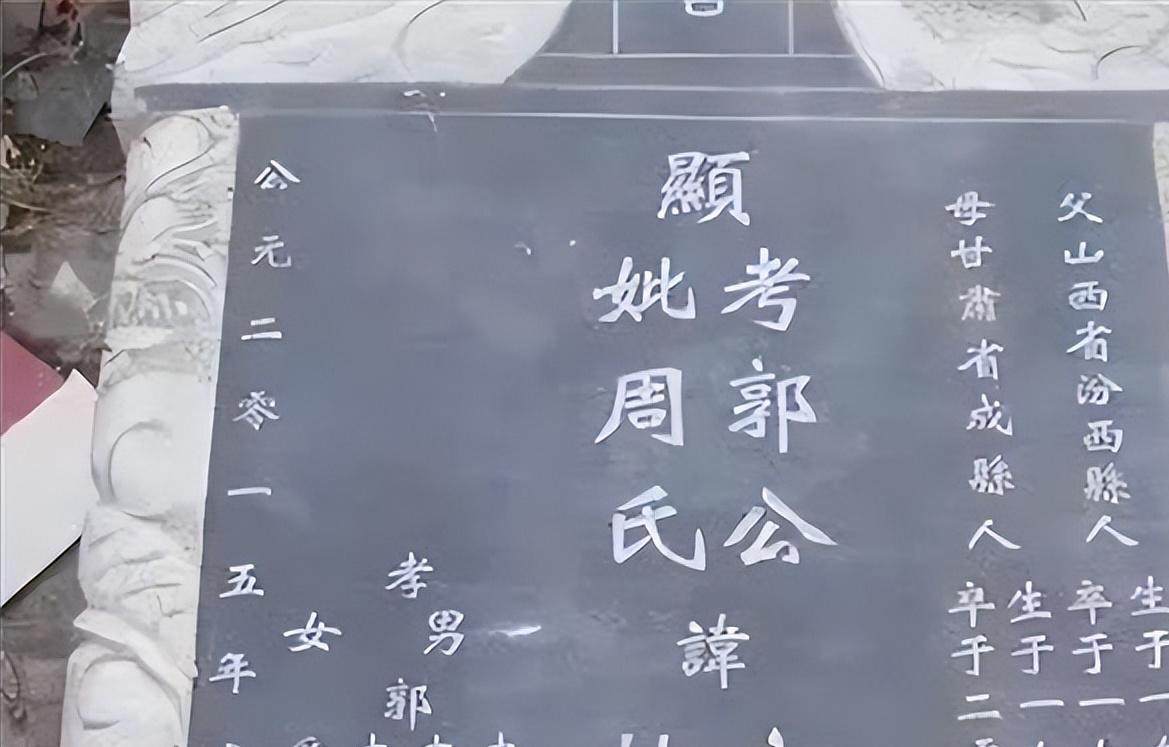 父山西省汾西縣人
生于一
卒于一
母甘肅省成縣人
生于一
卒于二
顯
考郭公
妣周氏
諱
孝
男
郭
女
公元二零一五年